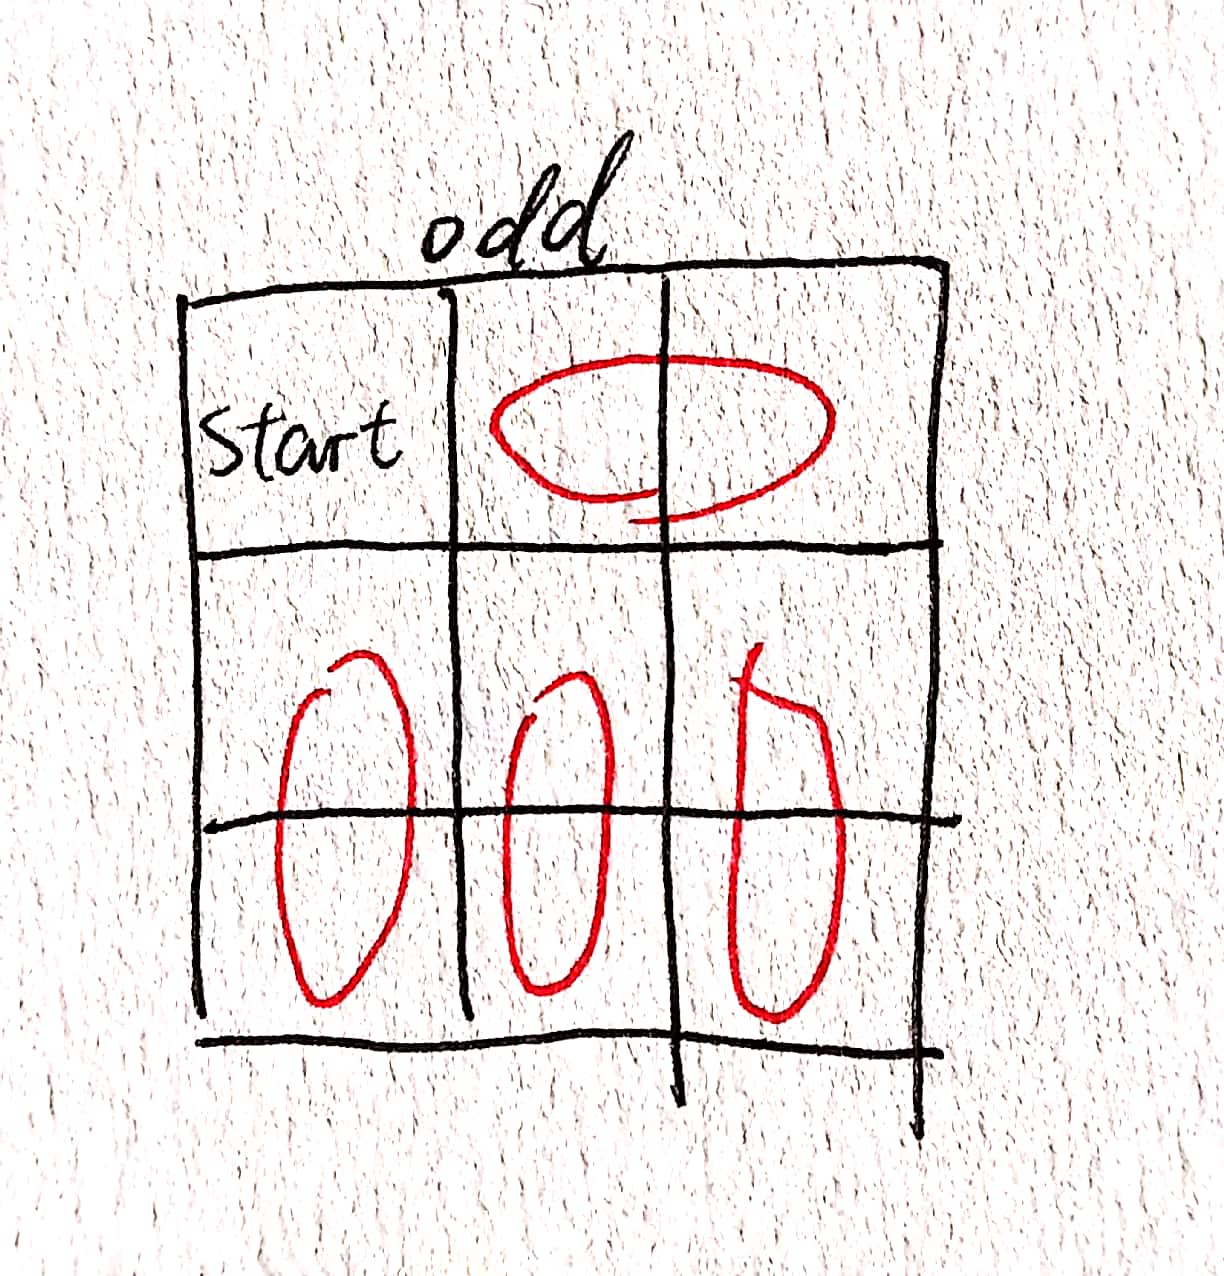 odd
Start